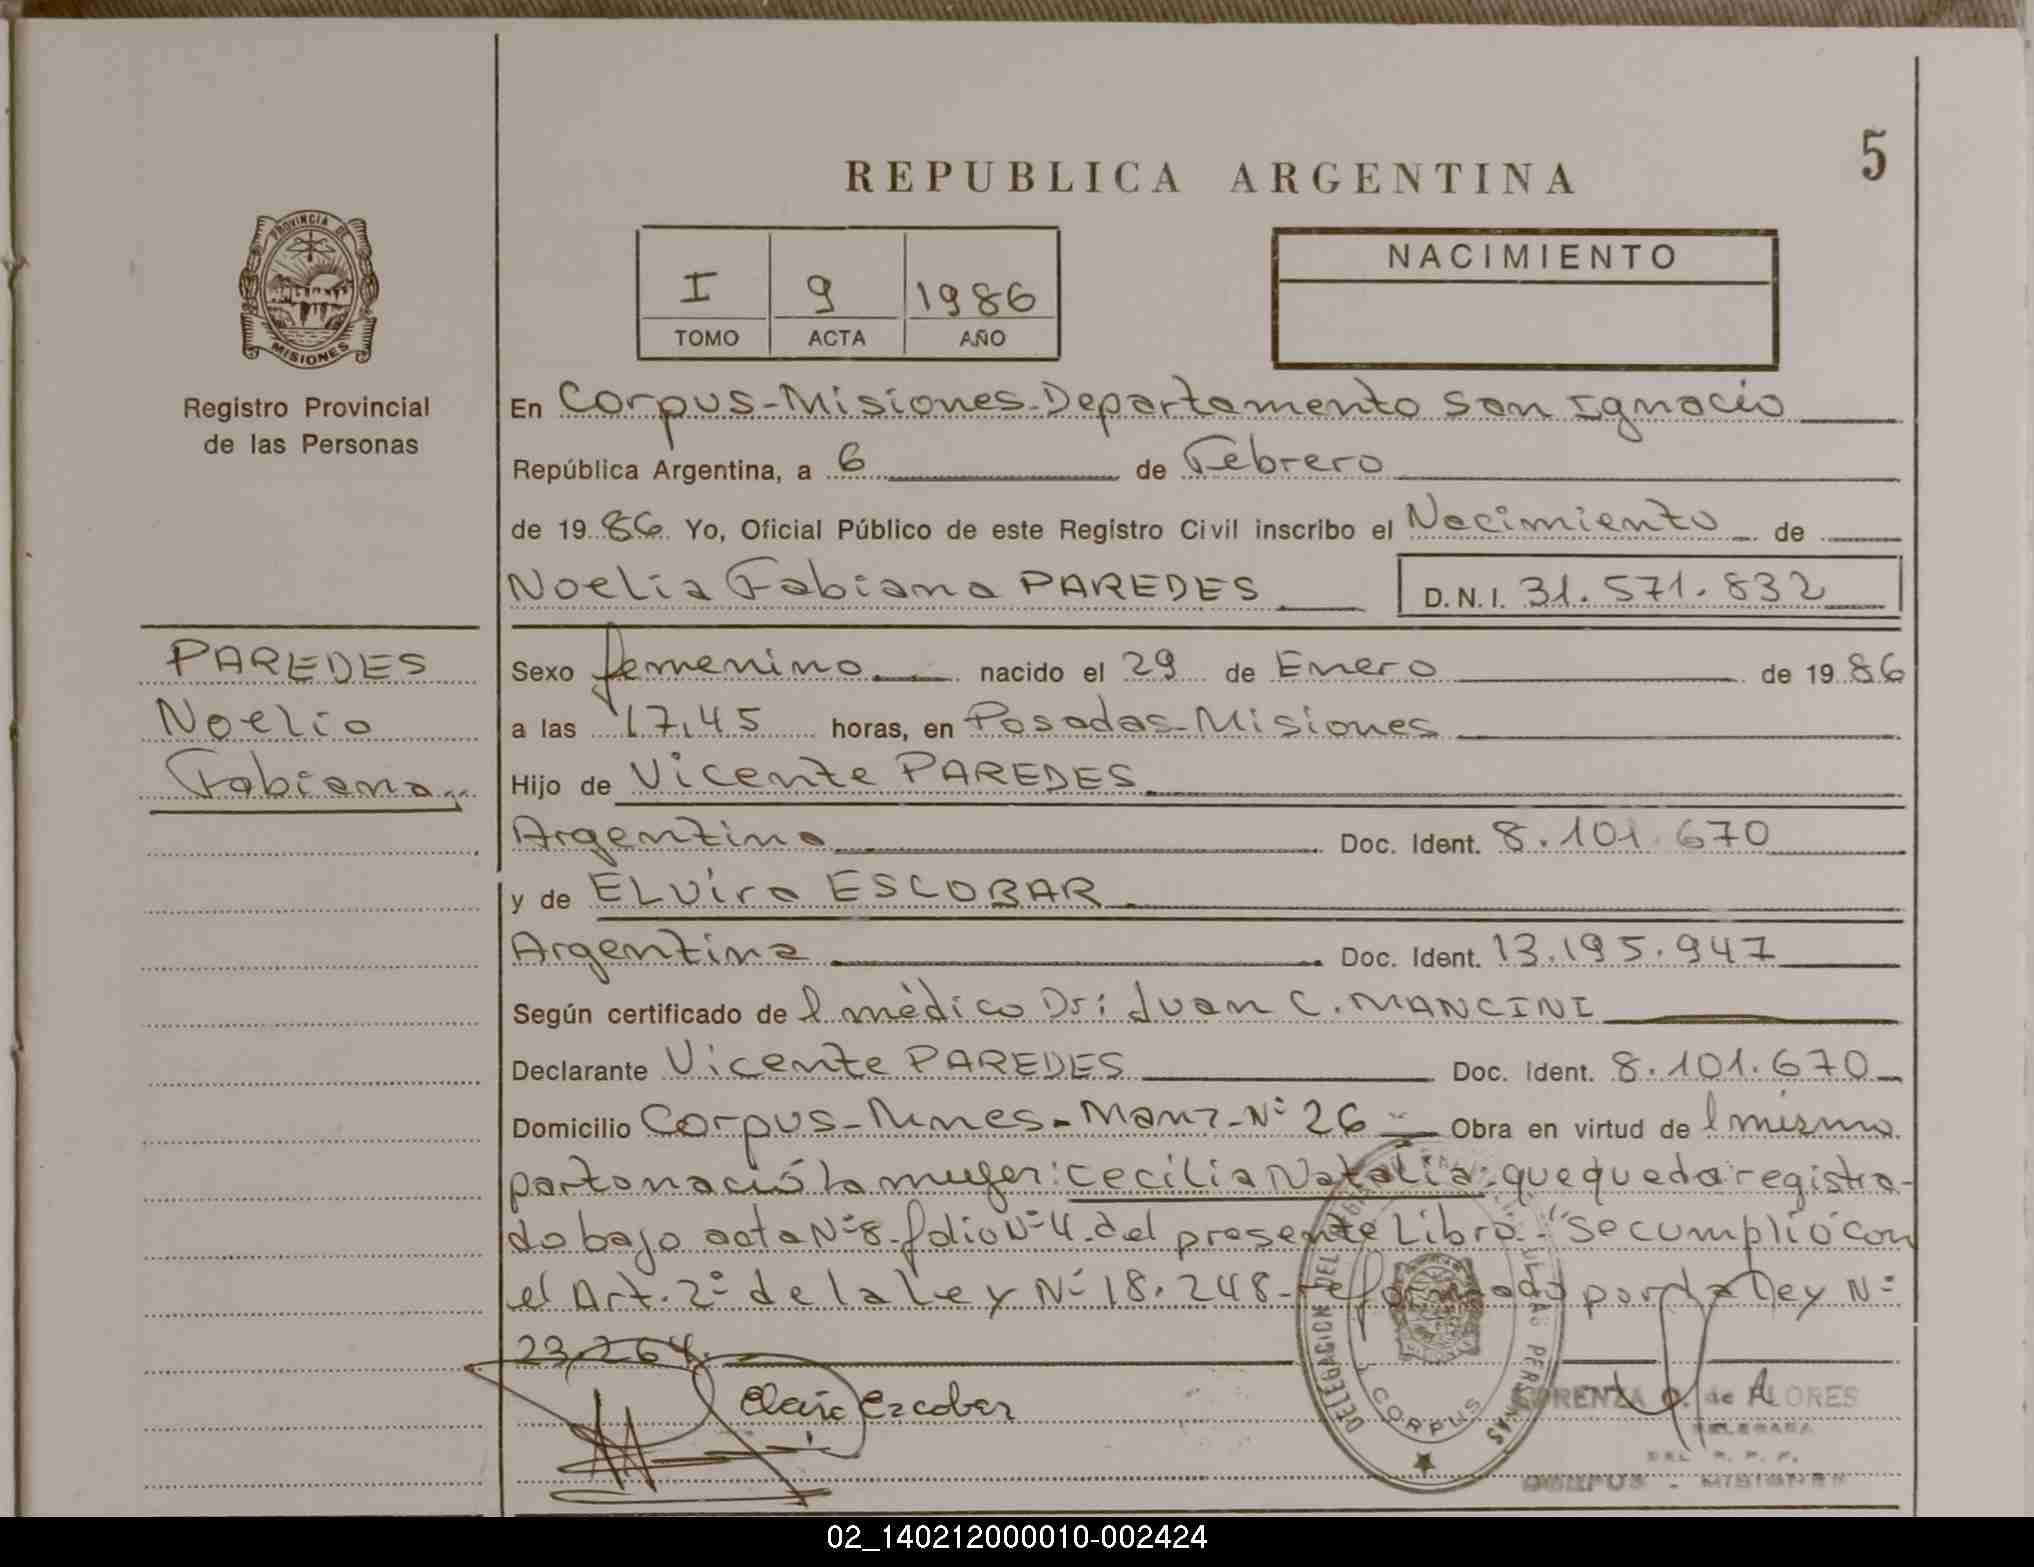 5
REPUBLICA ARGENTINA
PROVINCIA DE
MISIONES
Registro Provincial
de las Personas
I 9 1986
TOMO ACTA AÑO
NACIMIENTO
En Corpus-Misiones-Departamento San Ignacio
República Argentina, a 6 de Febrero
de 1986 Yo, Oficial Público de este Registro Civil inscribo el Nacimiento de
Noelia Fabiana PAREDES D.N.I. 31.571.832
PAREDES
Noelia
Fabiana
Sexo femenino nacido el 29 de Enero de 1986
a las 17,45 horas, en Posadas-Misiones
Hijo de Vicente PAREDES
Argentino Doc. Ident. 8.101.670
y de ELVira ESCOBAR
Argentina Doc. Ident. 13.195.947
Según certificado de l mèdico Dr: Juan C. MANCINI
Declarante Vicente PAREDES Doc. Ident. 8.101.670
Domicilio Corpus-Mnes-Manz-Nº 26 Obra en virtud de l mismo
parto nació la mujer: Cecilia Natalia: que queda registra-
do bajo acta Nº 8-folio Nº 4-del presente Libro-"Se cumplió con
el Art. 2º de la Ley Nº 18.248-reformado por la Ley Nº
23,264.
Escobar
DELEGACION DEL DE LAS PERSONAS
CORPUS
LORENZA de FLORES
DELEGADA
DEL R. P. P.
CORPUS - MISIONES
02_140212000010-002424